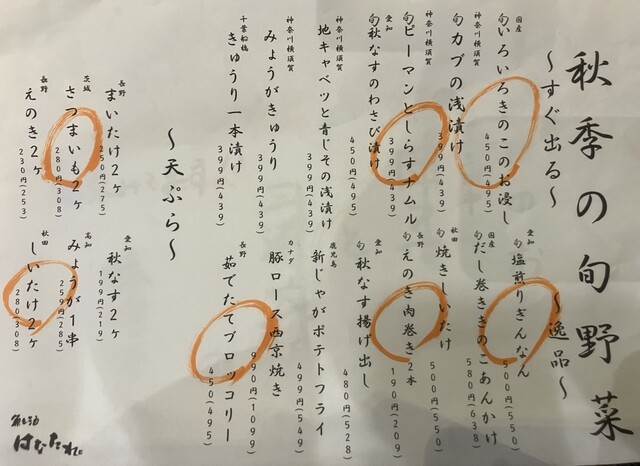 秋季の旬野菜
〜すぐ出る〜
国産
旬いろいろきのこのお浸し
450円(495)
神奈川横須賀
旬カブの浅漬け
399円(439)
神奈川横須賀
旬ピーマンとしらすナムル
399円(439)
愛知
旬秋なすのわさび漬け
450円(495)
神奈川横須賀
地キャベツと青じその浅漬け
399円(439)
神奈川横須賀
みょうがきゅうり
399円(439)
千葉船橋
きゅうり一本漬け
399円(439)
〜逸品〜
愛知
旬塩煎りぎんなん
500円(550)
国産
旬だし巻ききのこあんかけ
580円(638)
秋田
旬焼きしいたけ
500円(550)
長野
旬えのき肉巻き2本
190円(209)
愛知
旬秋なす揚げ出し
480円(528)
鹿児島
新じゃがポテトフライ
499円(549)
カナダ
豚ロース西京焼き
990円(1099)
長野
茹でたてブロッコリー
450(495)
〜天ぷら〜
長野
まいたけ2ヶ
250円(275)
茨城
さつまいも2ヶ
280円(308)
長野
えのき2ヶ
230円(253)
愛知
秋なす2ヶ
199円(219)
高知
みょうが1串
259円(285)
秋田
しいたけ2ヶ
280(308)
はなたれ